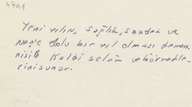 4741
Yeni yılın, sağlık, saadet ve
neşe dolu bir yıl olması temen-
nisile kalbi selâm ve hürmetle-
rimi sunar.